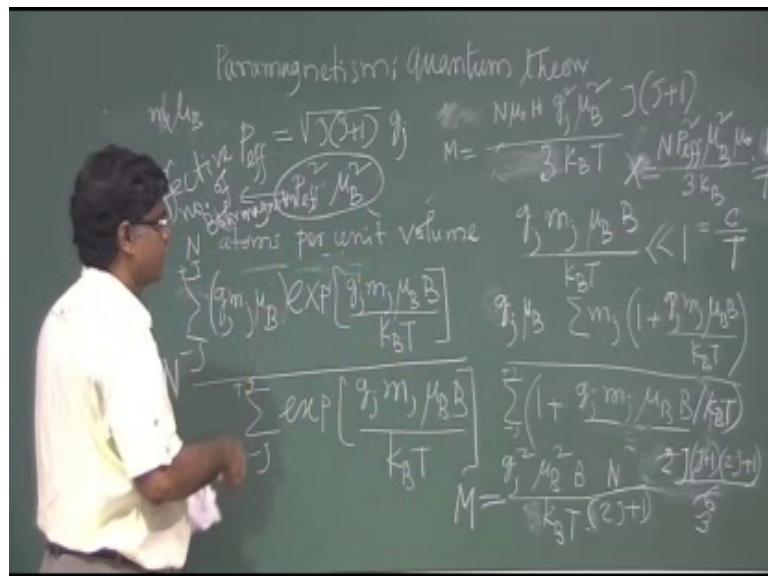 Paramagnetism; quantum theory
μ_B
P_eff = √J(J+1) g_j
P_eff² μ_B²
N atoms per unit volume
N Σ_{-J}^{+J} (g_j m_j μ_B) exp[g_j m_j μ_B B / k_B T]
Σ_{-J}^{+J} exp[g_j m_j μ_B B / k_B T]
M = N μ₀ H g_j² μ_B² J(J+1) / 3 k_B T
χ = N P_eff² μ_B² μ₀ / 3 k_B
= C/T
g_j m_j μ_B B / k_B T << 1
g_j μ_B Σ m_j (1 + g_j m_j μ_B B / k_B T)
Σ_{-J}^{+J} (1 + g_j m_j μ_B B / k_B T)
M = g_j² μ_B² B N / k_B T (2J+1) 2J(J+1)(2J+1)